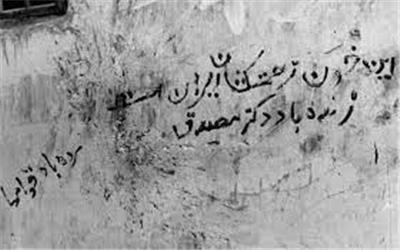 این خون زحمتکشان ایران است
زنده باد دکتر مصدق
مرده باد